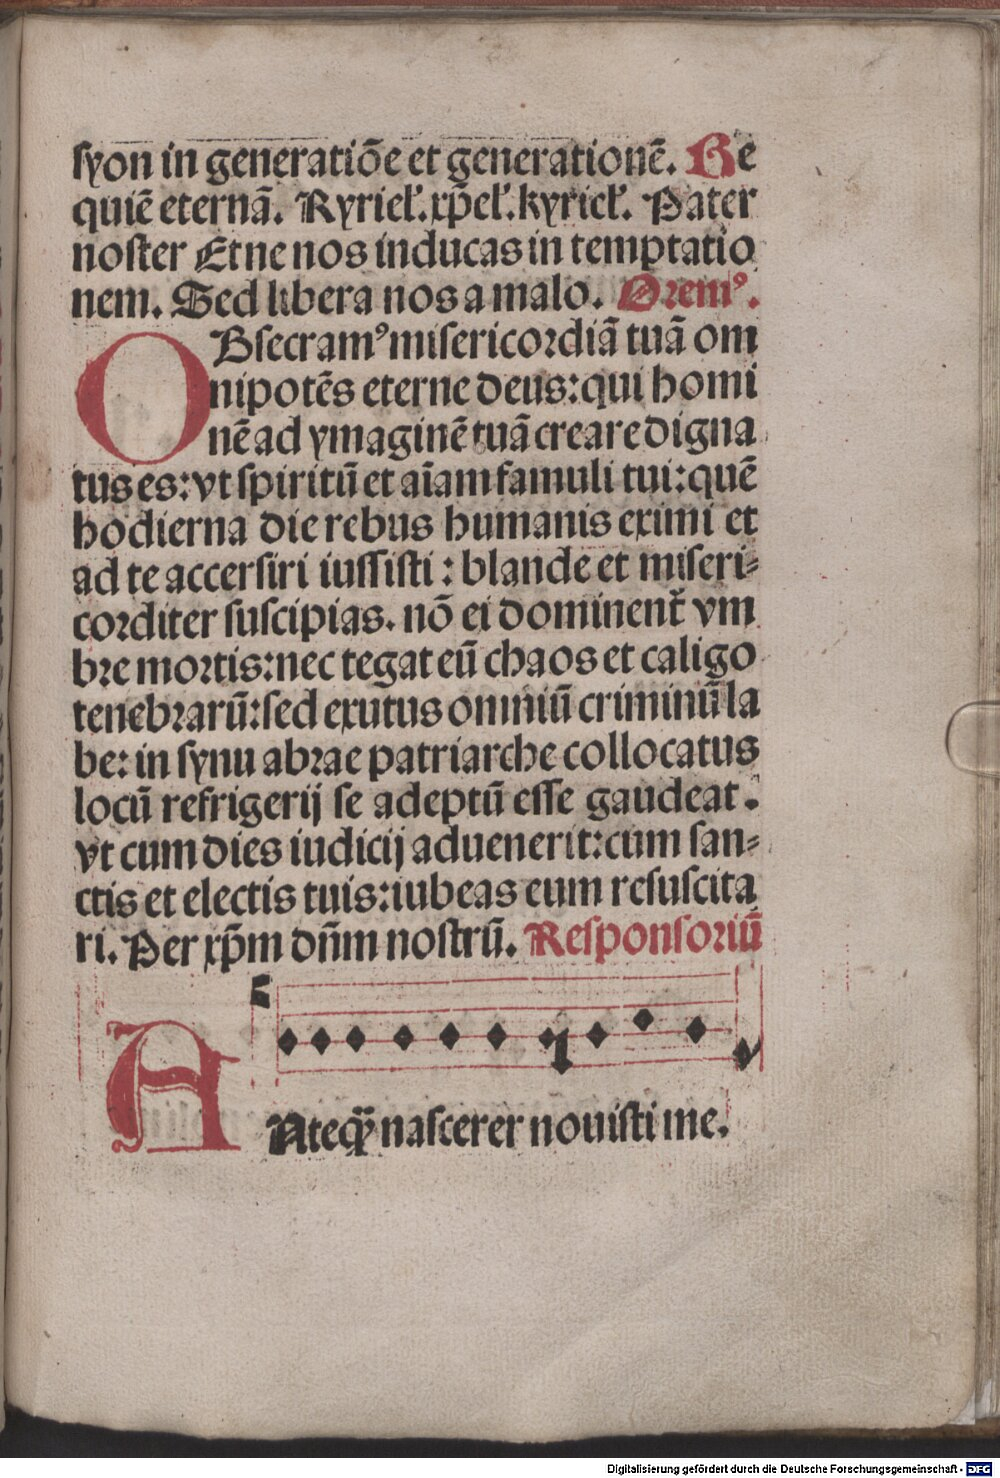 ſyon in generatiõe et generationẽ. Re
quiẽ eternã. Kyriel̕. xp̃el̕. kyriel̕. Pater
noſter Et ne nos inducas in temptatio
nem. Sed libera nos a malo. Oremꝰ.
OBſecramꝰ miſericordiã tuã om
nipotẽs eterne deus: qui homi
nẽ ad ymaginẽ tuã creare digna
tus es: vt ſpiritũ et aĩam famuli tui: quẽ
hodierna die rebus humanis eximi et
ad te accerſiri iuſſiſti: blande et miſeri⸗
corditer ſuſcipias. nõ ei dominent̃ vm
bre mortis: nec tegat eũ chaos et caligo
tenebrarũ: ſed exutus omniũ criminũ la
be: in ſynu abrae patriarche collocatus
locũ refrigerij ſe adeptũ eſſe gaudeat.
vt cum dies iudicij aduenerit: cum ſan⸗
ctis et electis tuis: iubeas eum reſuſcita
ri. Per xp̃m dñm noſtrũ. Reſponſoriũ
ANteq̃ naſcerer nouiſti me.
Digitalisierung gefördert durch die Deutsche Forschungsgemeinschaft - DFG